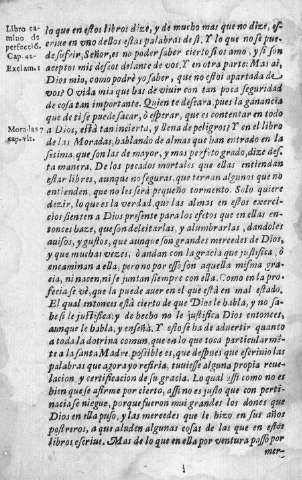 Libro ca-
mino de
perfeció.
Cap. 4o
Exclam. 1
Moradas 7
cap. vlt.
lo que en estos libros dize, y de mucho mas que no dize, es-
criue en vno dellos estas palabras de si. Y lo que no se pue-
de sufrir, Señor, es no poder saber cierto si os amo, y si son
aceptos mis desseos delante de vos. Y en otra parte: Mas ai,
Dios mio, como podrè yo saber, que no estoi apartada de
vos? O vida mia que has de viuir con tan poca seguridad
de cosa tan importante. Quien te desseara, pues la ganancia
que de ti se puede sacar, ò esperar, que es contentar en todo
a Dios, està tan incierta, y llena de peligros? Y en el libro
de las Moradas, hablando de almas que han entrado en la
setima, que son las de mayor, y mas perfeto grado, dize des-
ta manera. De los pecados mortales que ellas entiendan
estar libres, aunque no seguras, que ternan algunos que no
entienden, que no les serà pequeño tormento. Solo quiere
dezir, lo que es la verdad, que las almas en estos exerci-
cios sienten a Dios presente para los efetos que en ellas en-
tonces haze, que son deleitarlas, y alumbrarlas, dandoles
auisos, y gustos, que aunque son grandes mercedes de Dios,
y que muchas vezes, ò andan con la gracia que justifica, ò
encaminan a ella, pero no por esso son aquella misma gra-
cia, ni nacen, ni se juntan siempre con ella. Como en la pro-
fecia se vè, que la puede auer en el que està en mal estado.
El qual entonces està cierto de que Dios le habla, y no sa-
be si le justifica: y de hecho no le justifica Dios entonces,
aunque le habla, y enseña. Y esto se ha de aduertir quanto
a toda la dotrina comun, que en lo que toca particularmē-
te a la santa Madre, possible es, que despues que escriuio las
palabras que agora yo refiria, tuuiesse alguna propia reue-
lacion, y certificacion de su gracia. Lo qual assi como no es
bien que se afirme por cierto, assi no es justo que con perti-
nacia se niegue, porque fueron mui grandes los dones que
Dios en ella puso, y las mercedes que le hizo en sus años
postreros, a que aluden algunas cosas de las que en estos
libros escriue. Mas de lo que en ella por ventura passò por
mer-